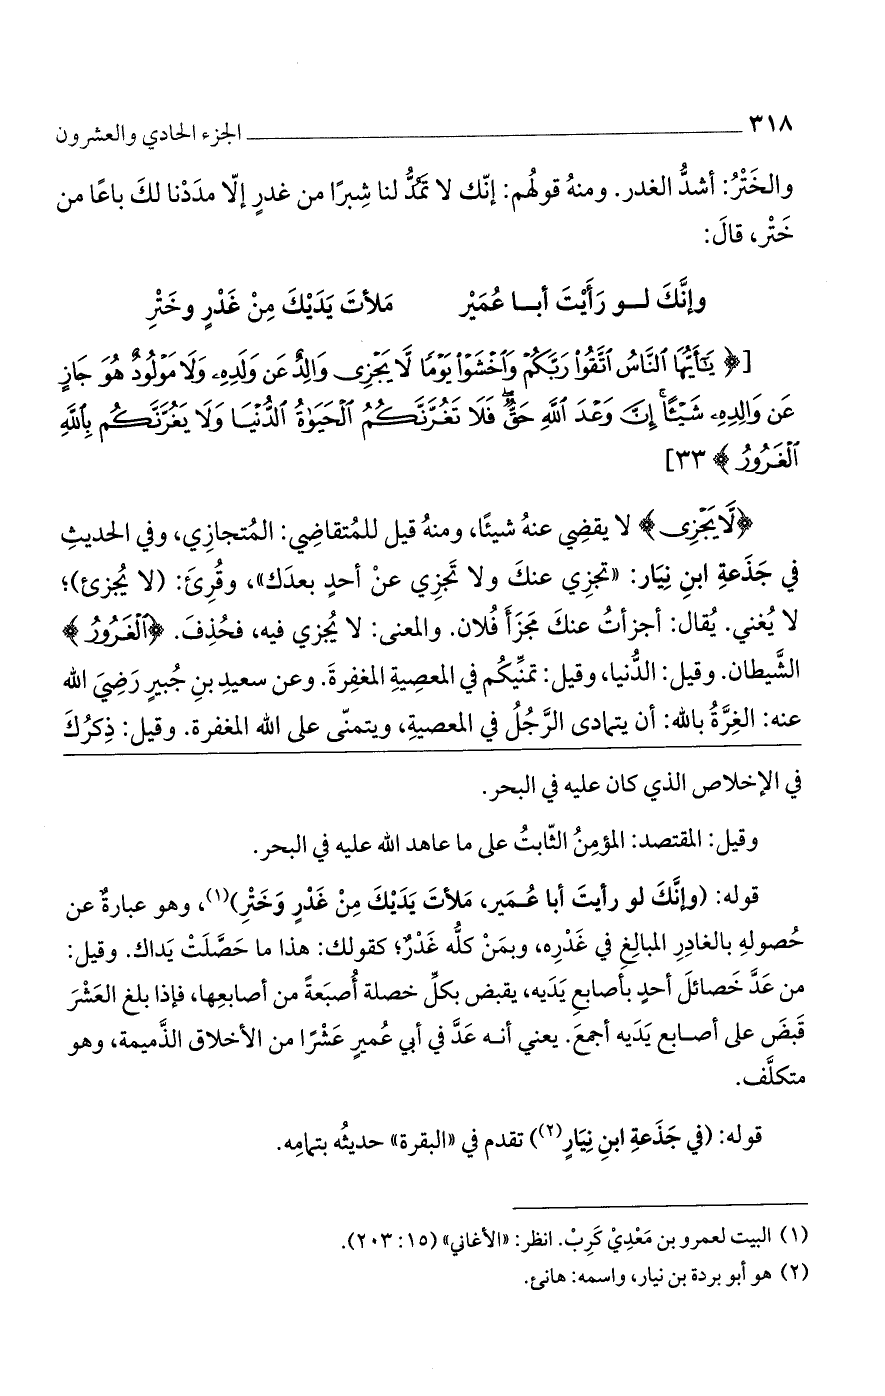 ٣١٨ ــــــــــــــــــــ الجزء الحادي والعشرون
والخَتْرُ: أشدُّ الغدر. ومنهُ قولُهم: إنّك لا تمُدُّ لنا شِبرًا من غدرٍ إلّا مدَدْنا لكَ باعًا من
خَتْر، قالَ:
وإنَّكَ لــو رَأَيْتَ أبــا عُمَيْر مَلأتَ يَدَيْكَ مِنْ غَدْرٍ وخَتْرِ
[﴿ يَٰٓأَيُّهَا ٱلنَّاسُ ٱتَّقُوا۟ رَبَّكُمْ وَٱخْشَوْا۟ يَوْمًا لَّا يَجْزِى وَالِدٌ عَن وَلَدِهِۦ وَلَا مَوْلُودٌ هُوَ جَازٍ
عَن وَالِدِهِۦ شَيْـًٔا ۚ إِنَّ وَعْدَ ٱللَّهِ حَقٌّ ۖ فَلَا تَغُرَّنَّكُمُ ٱلْحَيَوٰةُ ٱلدُّنْيَا وَلَا يَغُرَّنَّكُم بِٱللَّهِ
ٱلْغَرُورُ ﴾ ٣٣]
﴿لَّا يَجْزِى﴾ لا يقضِي عنهُ شيئًا، ومنهُ قيل للمُتقاضِي: المُتجازِي، وفي الحديثِ
في جَذَعةِ ابنِ نِيَار: «تجزِي عنكَ ولا تَجزِي عنْ أحدٍ بعدَك»، وقُرِئَ: (لا يُجزئ)؛
لا يُغني. يُقال: أجزأتُ عنكَ مَجزَأَ فُلان. والمعنى: لا يُجزي فيه، فحُذِفَ. ﴿ٱلْغَرُورُ ﴾
الشَّيطان. وقيل: الدُّنيا، وقيل: تمنِّيكُم في المعصِيةِ المغفِرةَ. وعن سعيدِ بنِ جُبيرٍ رَضِيَ الله
عنه: الغِرَّةُ بالله: أن يتمادى الرَّجُلُ في المعصيةِ، ويتمنّى على الله المغفرة. وقيل: ذِكرُكَ
في الإخلاص الذي كان عليه في البحر.
وقيل: المقتصد: المؤمِنُ الثّابتُ على ما عاهد الله عليه في البحر.
قوله: (وإنَّكَ لو رأيتَ أبا عُـمَير، مَلأتَ يَدَيْكَ مِنْ غَدْرٍ وَخَتْرِ)(١)، وهو عبارةٌ عن
حُصولهِ بالغادِرِ المبالِغِ في غَدْرِه، وبمَنْ كلُّه غَدْرٌ؛ كقولك: هذا ما حَصَّلَتْ يَداك. وقيل:
من عَدَّ خَصائلَ أحدٍ بأصابعِ يَدَيه، يقبض بكلِّ خصلة أُصبَعةً من أصابعِها، فإذا بلغ العَشْرَ
قَبضَ على أصـابع يَدَيه أجمعَ. يعني أنــه عَدَّ في أبي عُميرٍ عَشْرًا من الأخلاق الذَّميمة، وهو
متكلَّف.
قوله: (في جَذَعةِ ابنِ نِيَارٍ(٢)) تقدم في «البقرة» حديثُه بتمامِه.
(١) البيت لعمرو بن مَعْدِيْ كَرِبْ. انظر: «الأغاني» (١٥: ٢٠٣).
(٢) هو أبو بردة بن نيار، واسمه: هانئ.